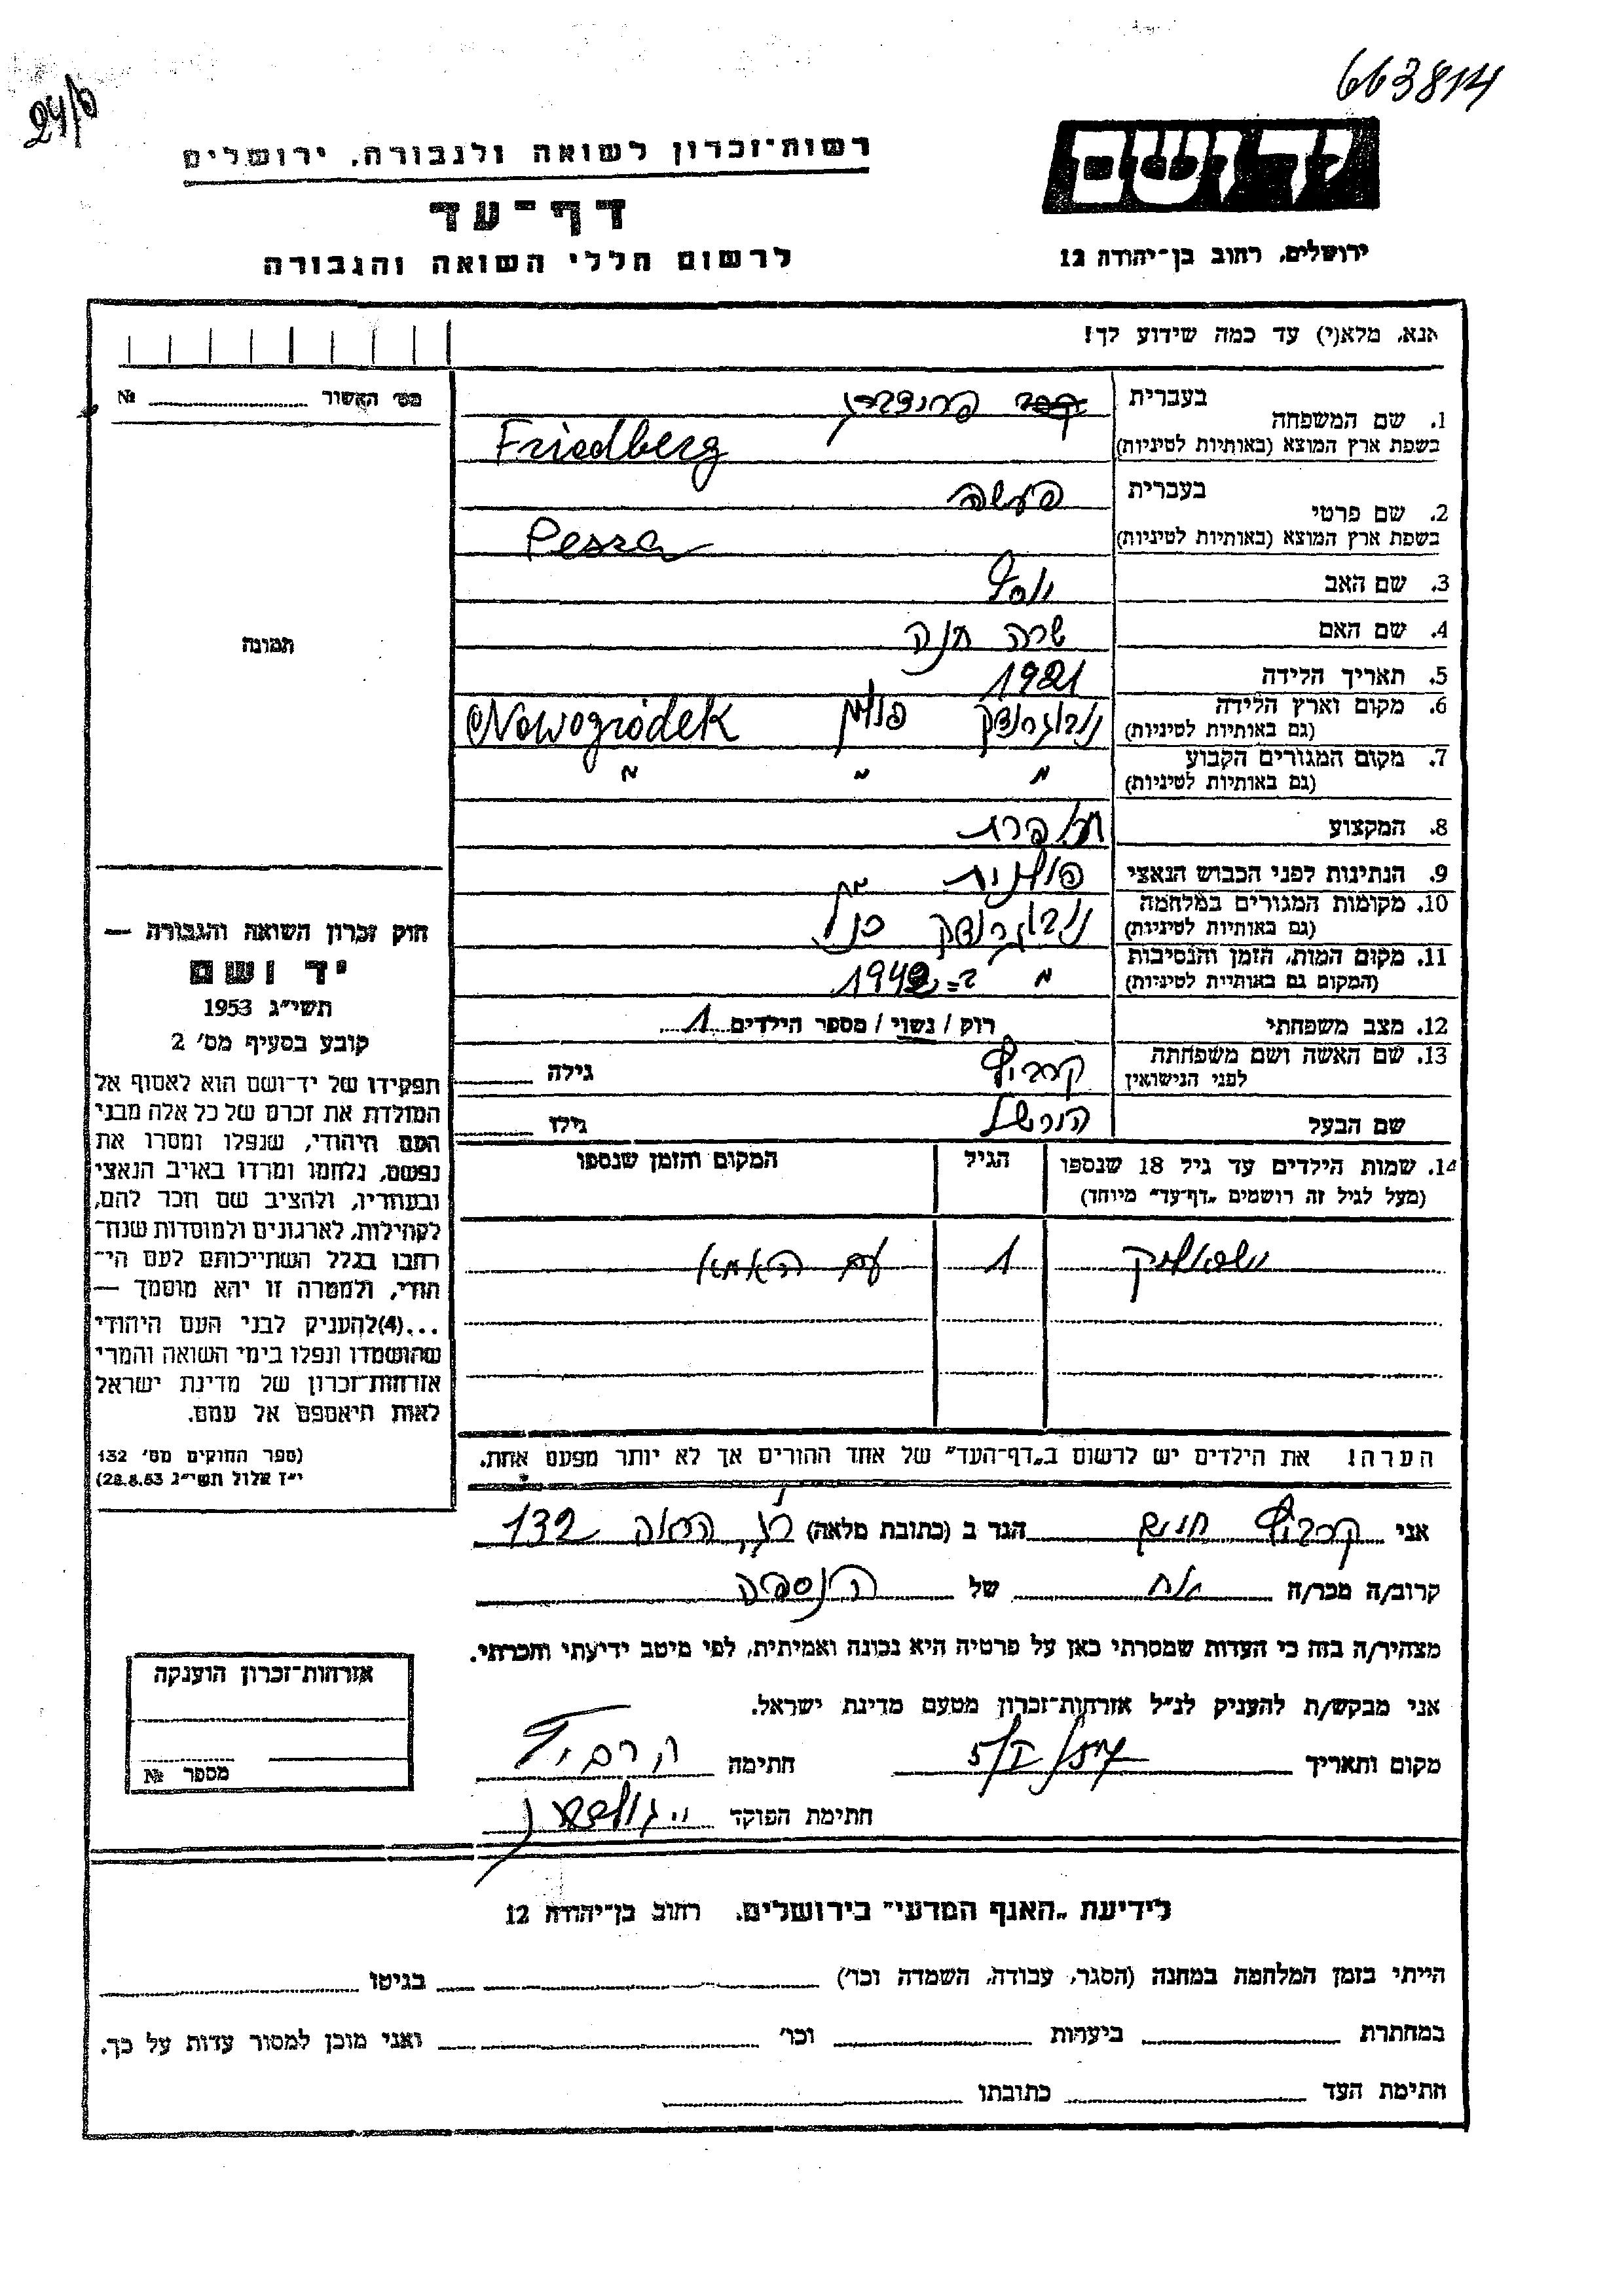 663814
24/6
יד ושם
ירושלים, רחוב בן־יהודה 12
רשות־זכרון לשואה ולגבורה, ירושלים
דף־עד
לרשום חללי השואה והגבורה
אנא, מלא(י) עד כמה שידוע לך!
מס' האשור №
תמונה
1. שם המשפחה בעברית פרידברג
בשפת ארץ המוצא (באותיות לטיניות) Friedberg
2. שם פרטי בעברית פעשה
בשפת ארץ המוצא (באותיות לטיניות) Pessa
3. שם האב יוסף
4. שם האם שרה חנה
5. תאריך הלידה 1921
6. מקום וארץ הלידה נובוגרודק פולין Nowogródek
(גם באותיות לטיניות)
7. מקום המגורים הקבוע " " "
(גם באותיות לטיניות)
8. המקצוע תופרת
9. הנתינות לפני הכבוש הנאצי פולנית
10. מקומות המגורים במלחמה נובוגרודק
(גם באותיות לטיניות)
11. מקום המות, הזמן והנסיבות " ב־1942
(המקום גם באותיית לטיניות)
12. מצב משפחתי רוק / נשוי / מספר הילדים 1
13. שם האשה ושם משפחתה גילה
לפני הנישואין
שם הבעל הורשל גילו
14. שמות הילדים עד גיל 18 שנספו הגיל המקום והזמן שנספו
(מעל לגיל זה רושמים „דף־עד" מיוחד)
1 עם האמא
הערה! את הילדים יש לרשום ב„דף־העד" של אחד ההורים אך לא יותר מפעם אחת.
חוק זכרון השואה והגבורה —
יד ושם
תשי"ג 1953
קובע בסעיף מס' 2
תפקידו של יד־ושם הוא לאסוף אל
המולדת את זכרם של כל אלה מבני
העם היהודי, שנפלו ומסרו את
נפשם, נלחמו ומרדו באויב הנאצי
ובעוזריו, ולהציב שם וזכר להם,
לקהילות, לארגונים ולמוסדות שנח־
רחבו בגלל השתייכותם לעם הי־
הודי, ולמטרה זו יהא מוסמך —
...(4)להעניק לבני העם היהודי
שהושמדו ונפלו בימי השואה והמרי
אזרחות־זכרון של מדינת ישראל
לאות היאספם אל עמם.
(ספר החוקים מס' 132
י"ז אלול תשי"ג 28.8.53)
אני חיים הגר ב (כתובת מלאה) 132
קרוב/ה מכר/ה אח של הנספה
מצהיר/ה בזה כי העדות שמסרתי כאן על פרטיה היא נכונה ואמיתית, לפי מיטב ידיעתי והכרתי.
אני מבקש/ת להעניק לנ"ל אזרחות־זכרון מטעם מדינת ישראל.
מקום ותאריך חתימה
חתימת הפוקד
אזרחות־זכרון הוענקה
מספר №
לידיעת „האגף המדעי" בירושלים, רחוב בן־יהודה 12
הייתי בזמן המלחמה במחנה (הסגר, עבודה, השמדה וכו') בגיטו
במחתרת ביערות וכו' ואני מוכן למסור עדות על כך.
חתימת העד כתובתו